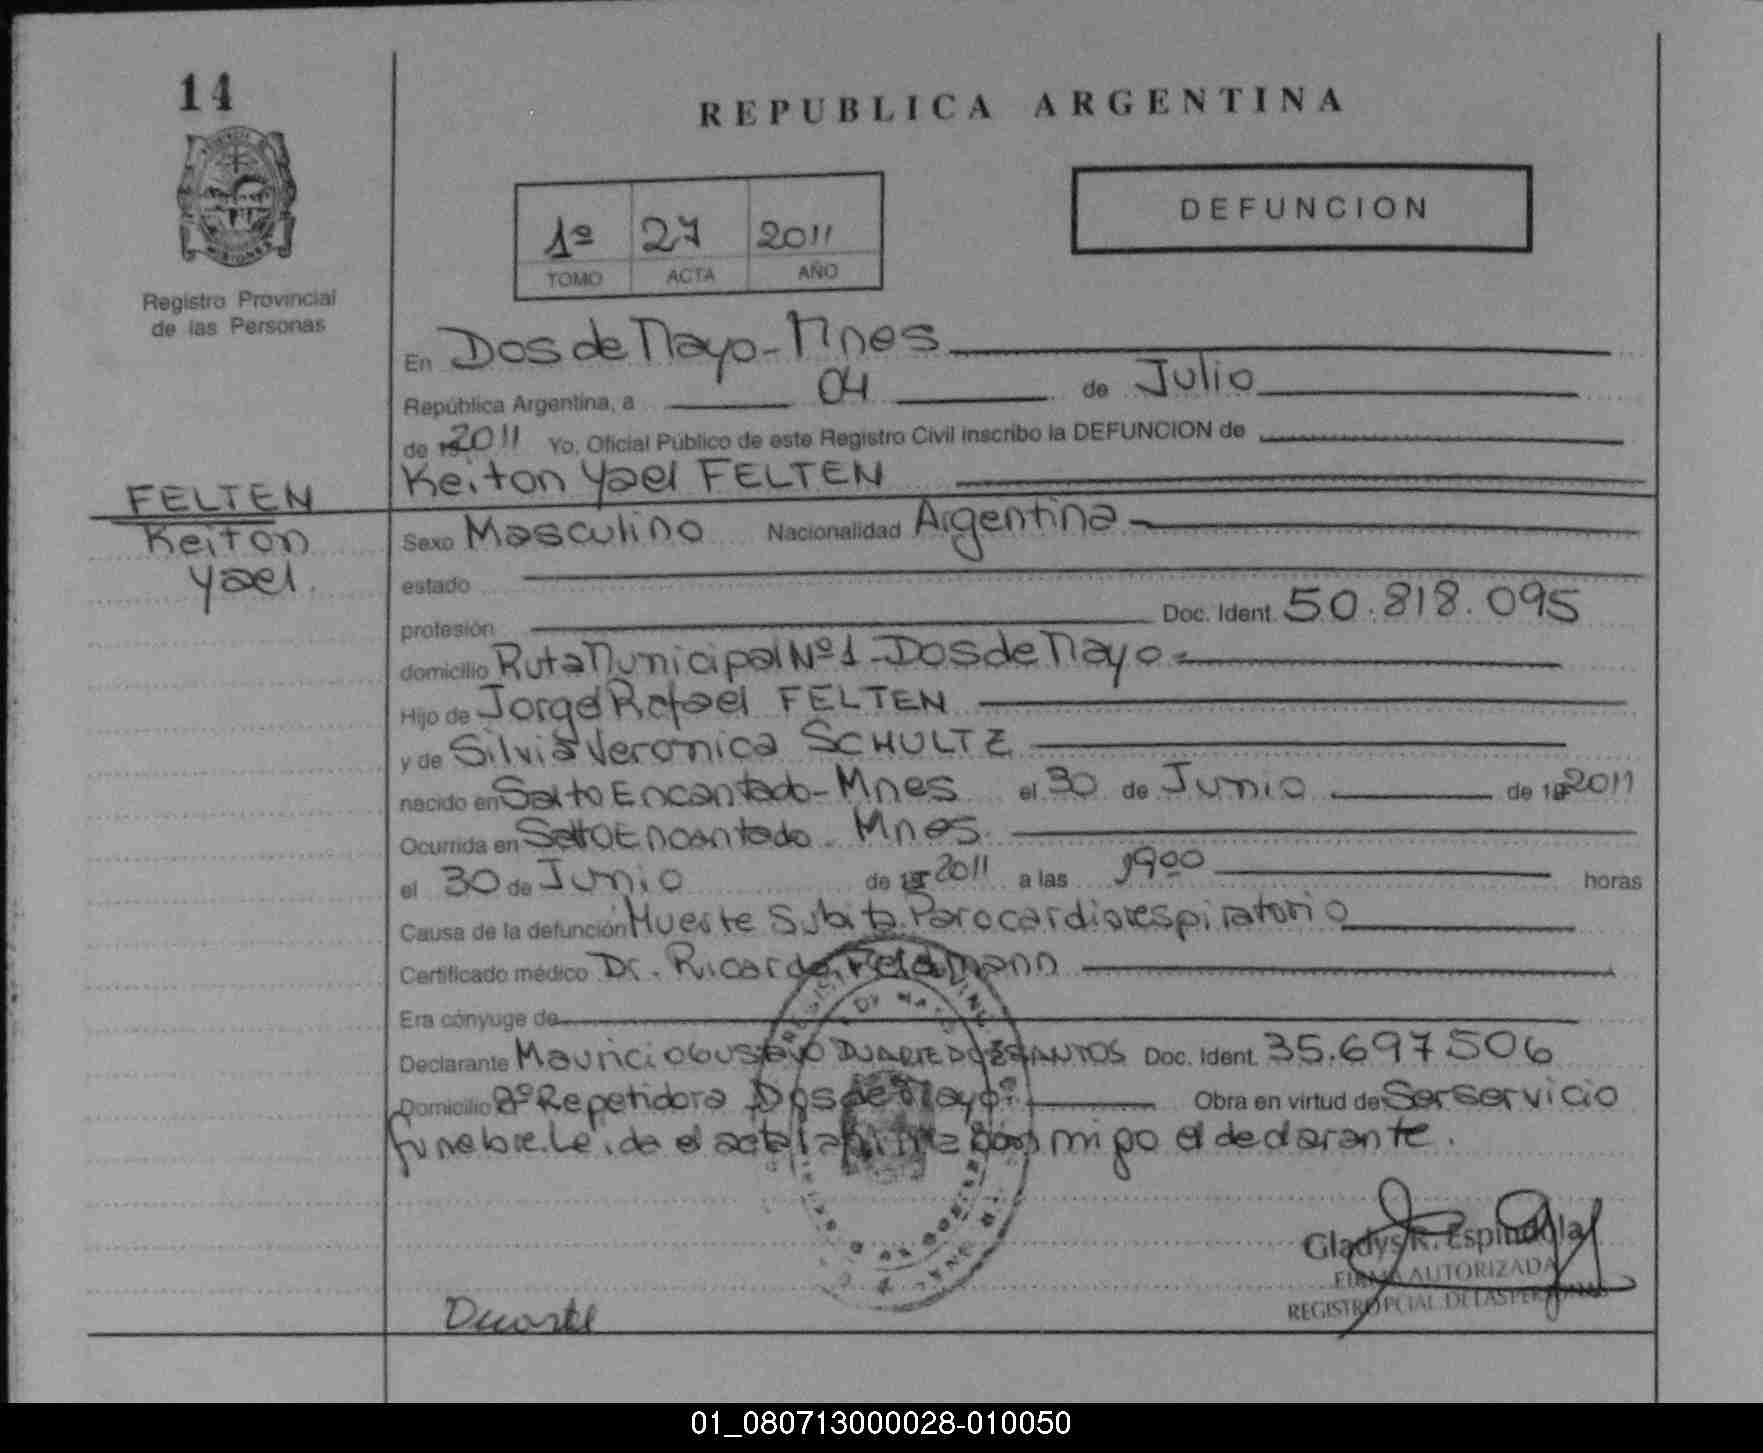 14
REPUBLICA ARGENTINA
DEFUNCION
1º 27 2011
TOMO ACTA AÑO
Registro Provincial
de las Personas
En Dos de Mayo - Mnes
República Argentina, a 04 de Julio
de 2011 Yo, Oficial Público de este Registro Civil inscribo la DEFUNCION de
Keiton Yael FELTEN
FELTEN
Keiton
Yael.
Sexo Masculino Nacionalidad Argentina
estado
profesión Doc. Ident. 50.818.095
domicilio Ruta Municipal Nº 1 - Dos de Mayo
Hijo de Jorge Rafael FELTEN
y de Silvia Veronica SCHULTZ
nacido en Salto Encantado - Mnes el 30 de Junio de 2011
Ocurrida en Salto Encantado - Mnes
el 30 de Junio de 2011 a las 19 00 horas
Causa de la defunción Muerte Subita. Parocardiorespiratorio
Certificado médico Dr. Ricardo Feldmann
Era cónyuge de
Declarante Mauricio Gustavo DUARTE DOS SANTOS Doc. Ident. 35.697.506
Domicilio Repetidora Dos de Mayo Obra en virtud de Ser servicio
funebre. Leida el acta la firma con migo el declarante.
Gladys R. Espindola
FIRMA AUTORIZADA
REGISTRO PCIAL. DE LAS PERSONAS
Duarte
01_080713000028-010050